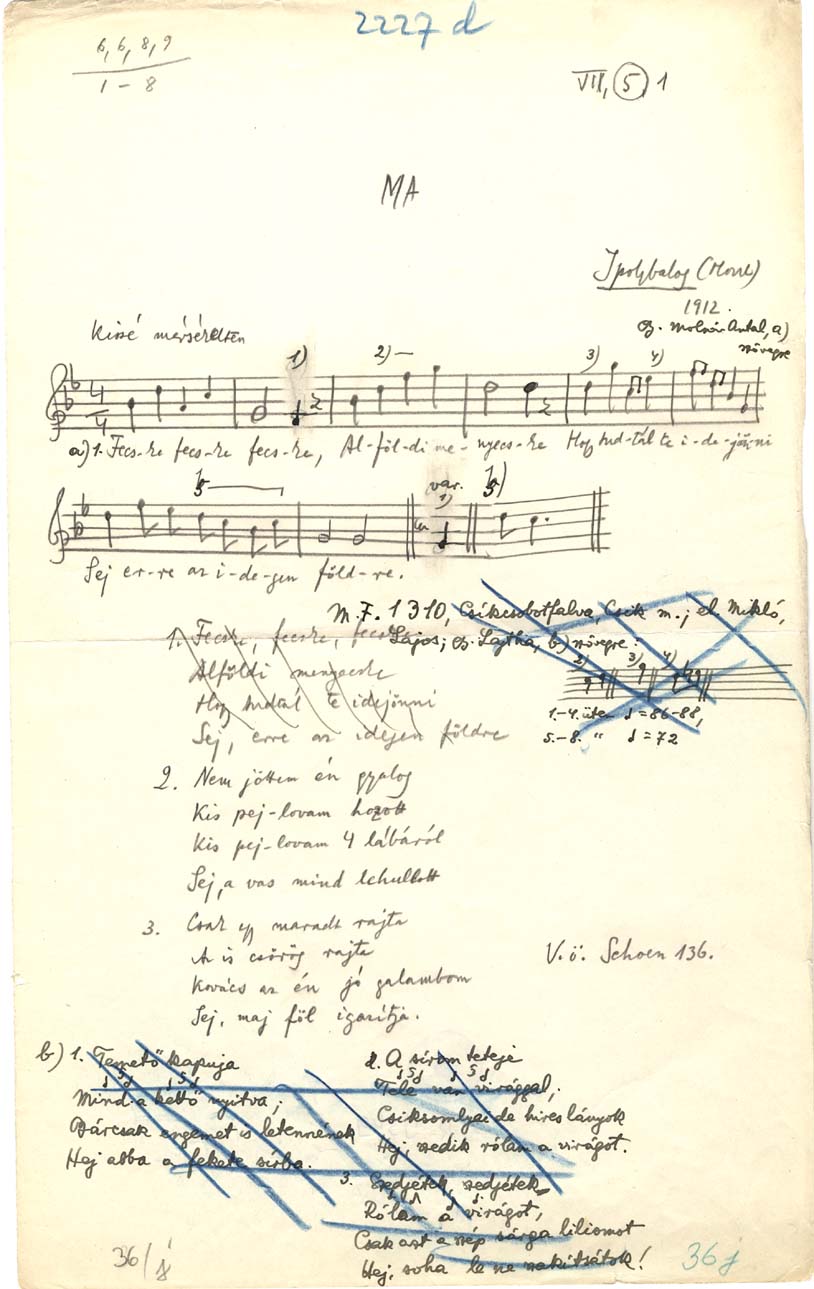 2227 d
6, 6, 8, 9
1 - 8
VII, 5 1
MA
Ipolybalog (Hont)
1912.
Gy. Molnár Antal, a)
szövegre
Kissé mérsékelten
1) 2) 3) 4)
4
4
a) 1. Fecs-ke fecs-ke fecs-ke, Al-föl-di me-nyecs-ke Hogy tud-tál te i-de-jön-ni
5
var.
1) 5)
Sej er-re az i-de-gen föld-re.
M.F. 1310, Csíkcsobotfalva, Csík m.; el. Mikló,
Lajos; Gy. Lajtha, b) szövegre:
1. Fecske, fecske, fecske
Alföldi menyecske
Hogy tudtál te idejönni
Sej, erre az idegen földre
2) 3) 4)
1.-4. ütem = 86-88,
5.-8. " = 72
2. Nem jöttem én gyalog
Kis pej-lovam hozott
Kis pej-lovam 4 lábáról
Sej, a vas mind lehullott
3. Csak egy maradt rajta
Az is csörög rajta
Kovács az én jó galambom
Sej, maj föl igazítja.
V.ö. Schoen 136.
b) 1. Temető kapuja
Mind a kettő nyitva;
Bárcsak engemet is letennének
Hej abba a fekete sírba.
2. A sírom teteje
Tele van virággal;
Csiksomlyai de hires lányok
Hej, szedik rólam a virágot.
3. Szedjétek, szedjétek
Rólam a virágot,
Csak azt a szép sárga liliomot
Hej, soha le ne szakítsátok!
36/j
36j